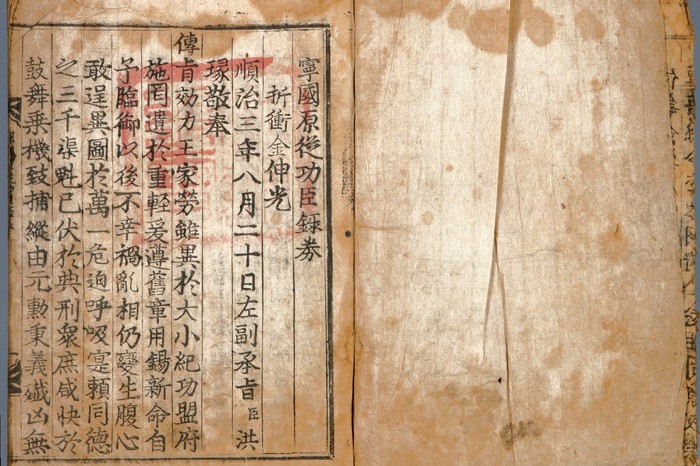 寧國原從功臣錄券
折衝金伸光
順治三年八月二十日左副承旨臣洪
瑑敬奉
傳旨効力王家勞雖異於大小紀功盟府
施罔遺於重輕爰遵舊章用錫新命自
予臨御以後不幸禍亂相仍變生腹心
敢逞異圖於萬一危迫呼吸寔賴同德
之三千渠魁已伏於典刑衆庶咸快於
鼓舞乗機致捕縱由元勳秉義鐵凶無